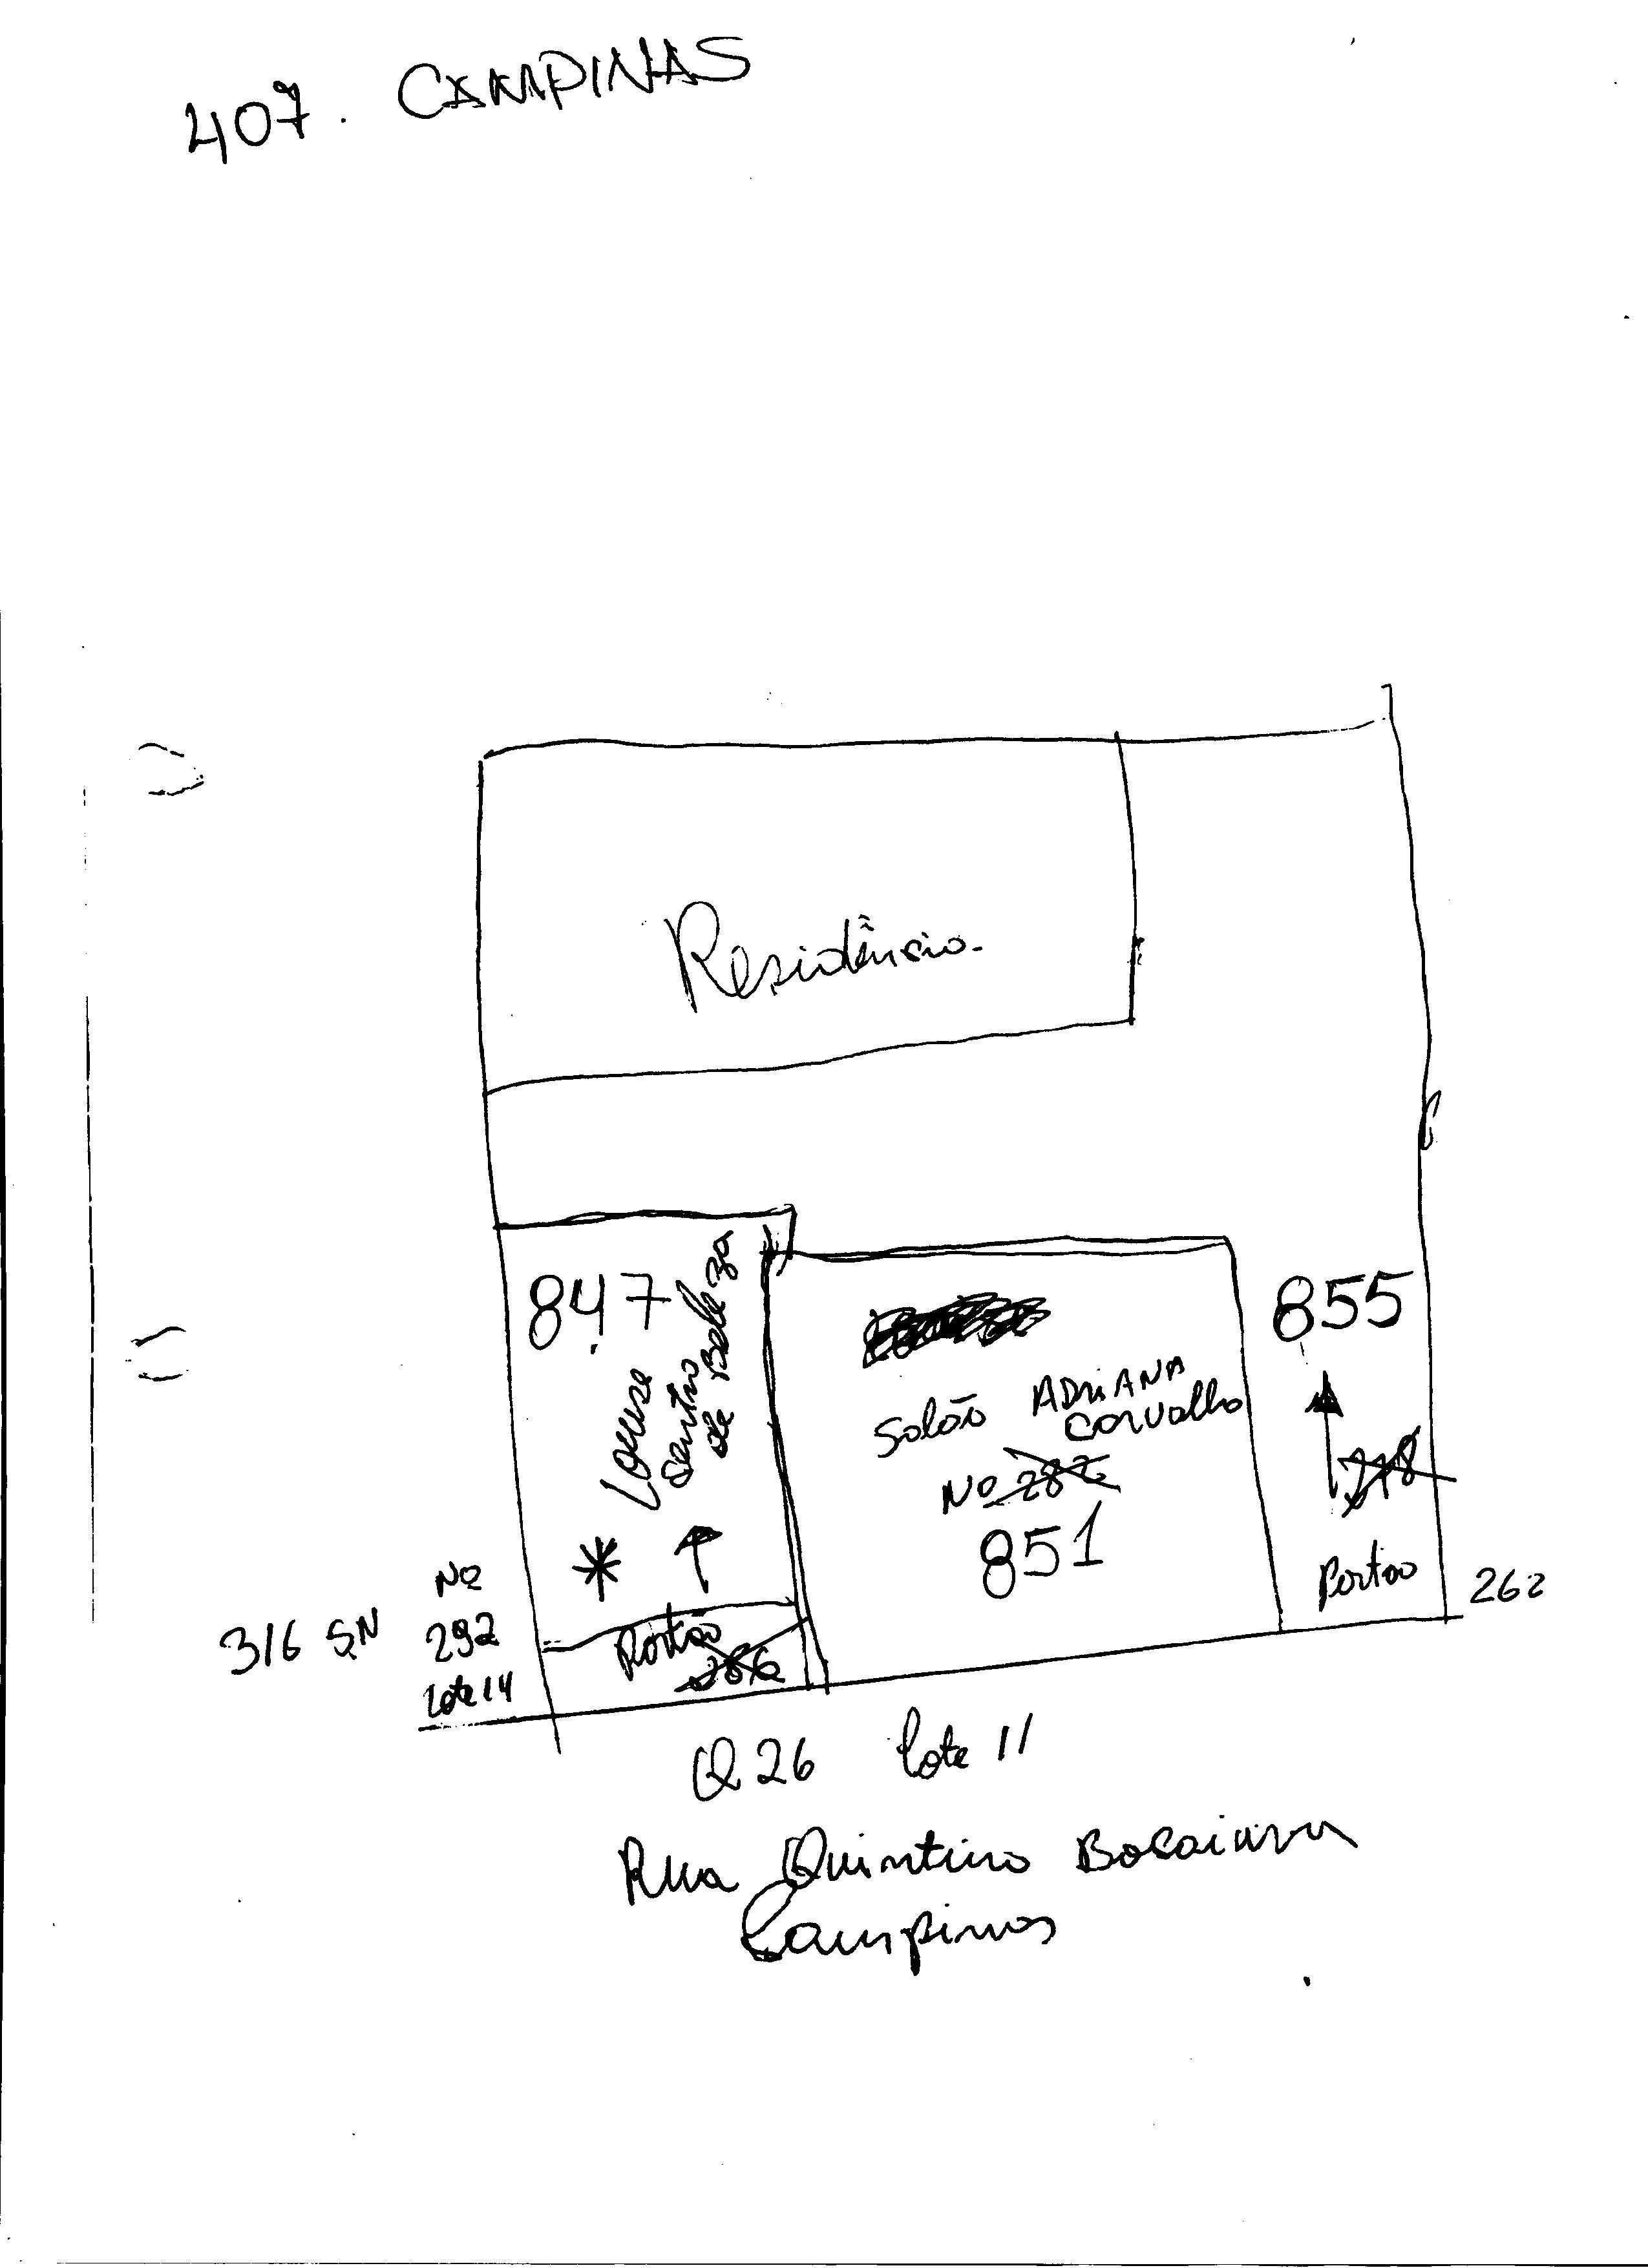 407. CAMPINAS
Residência
847
Louse
Sentro
de Beleza
855
Salão ADRIANA
Carvalho
No 282
851
278
Portao
262
No
316 SN 292
Lote 14
Portão
286
Q 26 Lote 11
Rua Quintino Bocaiuva
Campinas